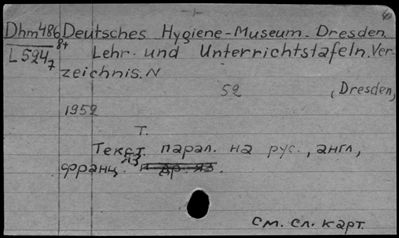 Dhm486 Deutsches Hygiene-Museum. Dresden.
L5247 84 Lehr- und Unterrichtstafeln. Ver-
zeichnis. N
52 , (Dresden,
1952
T.
Текст парал. на рус., англ,
франц. яз.
см. сл. карт.